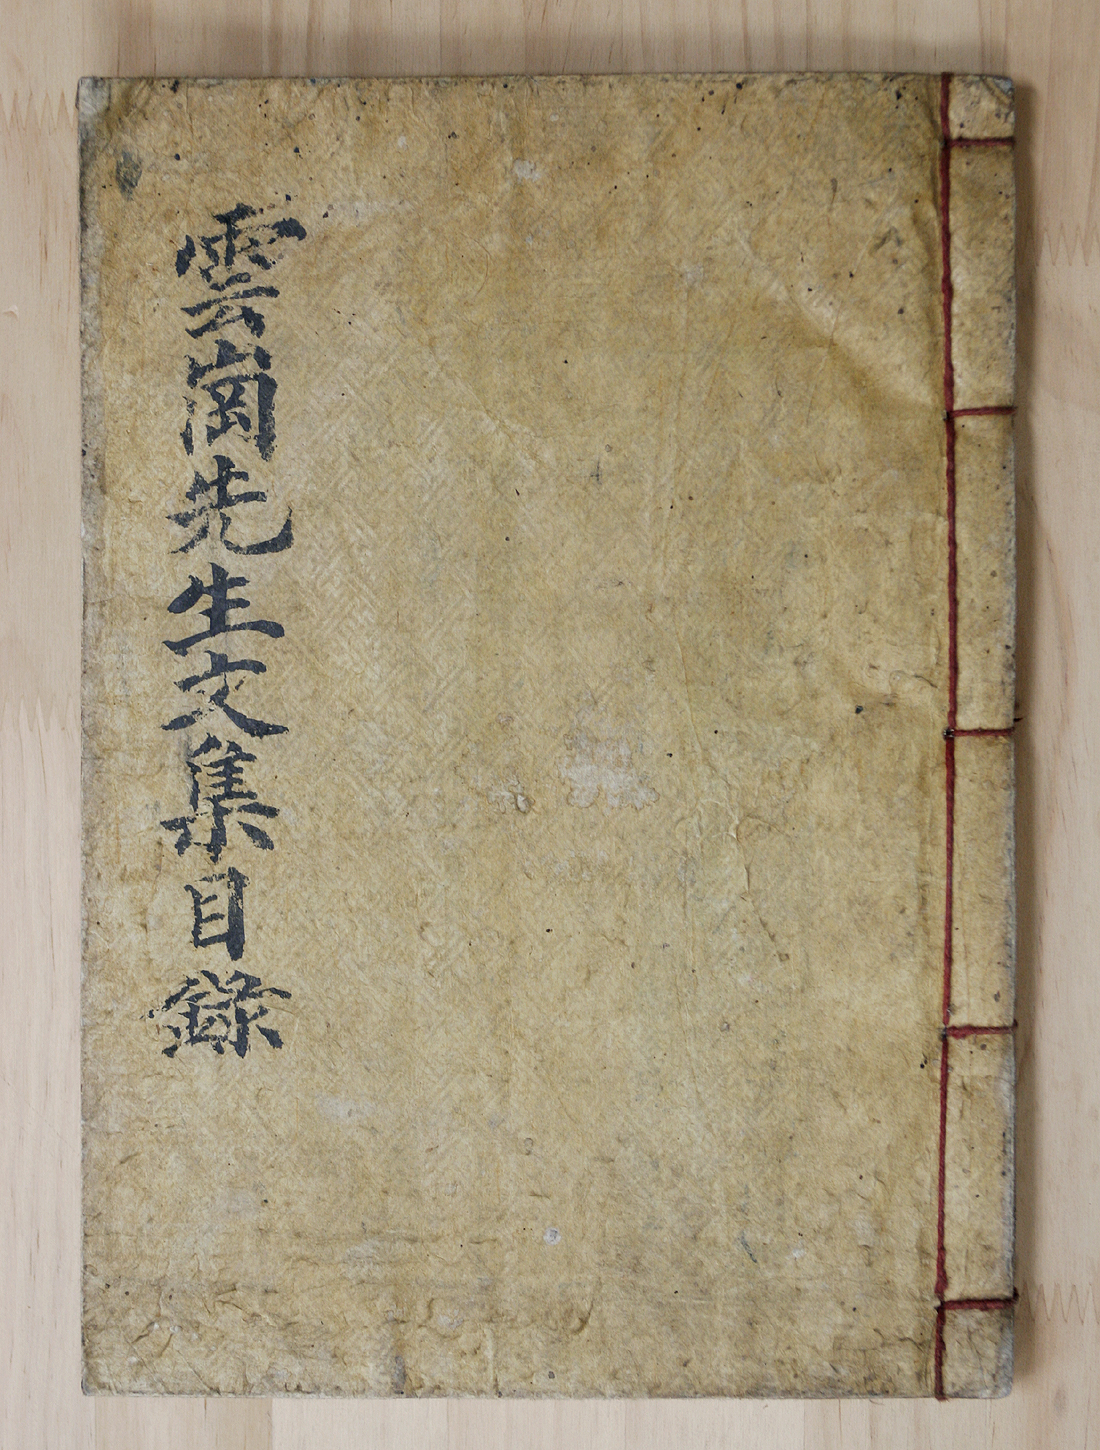 雲崗先生文集目錄